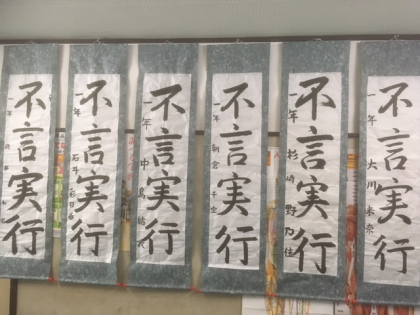 不言実行
一年
不言実行
一年 石井
不言実行
一年 中島
不言実行
一年 朝倉
不言実行
一年 杉崎野乃佳
不言実行
一年 大川